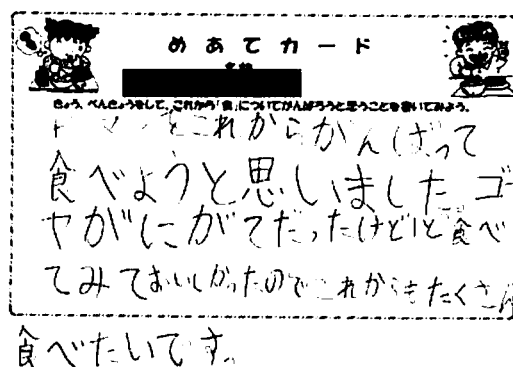 めあてカード
きょう、べんきょうをして、これから「食」についてがんばろうと思うことを書いてみよう。
これからがんばって
食べようと思いました。ゴー
ヤがにがてだったけど食べ
てみておいしかったのでこれからもたくさん
食べたいです。